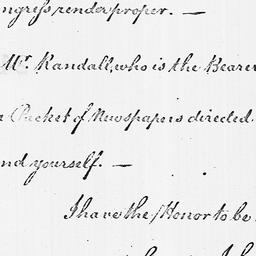 ngress, render proper. —
Mr. Randall, who is the Bearer
a Packet of Newspapers directed
nd yourself. —
I have the Honor to be